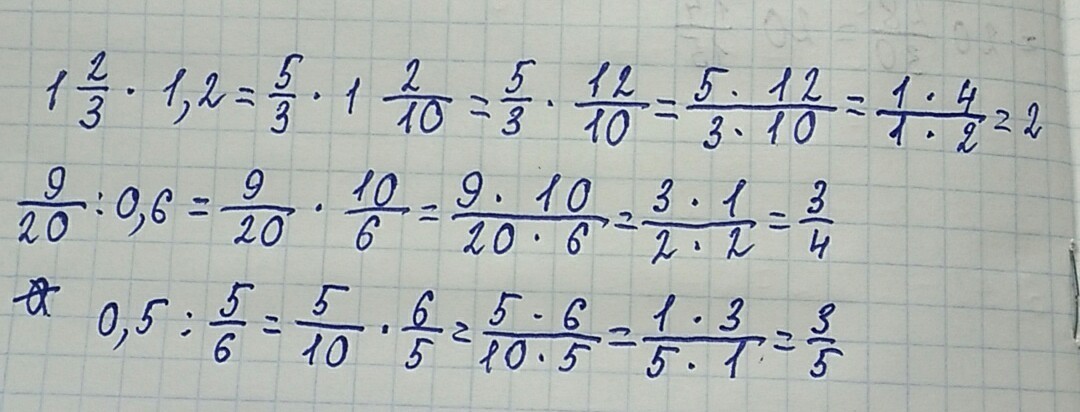 1 2/3 · 1,2 = 5/3 · 1 2/10 = 5/3 · 12/10 = (5 · 12)/(3 · 10) = (1 · 4)/(1 · 2) = 2
9/20 : 0,6 = 9/20 · 10/6 = (9 · 10)/(20 · 6) = (3 · 1)/(2 · 2) = 3/4
0,5 : 5/6 = 5/10 · 6/5 = (5 · 6)/(10 · 5) = (1 · 3)/(5 · 1) = 3/5